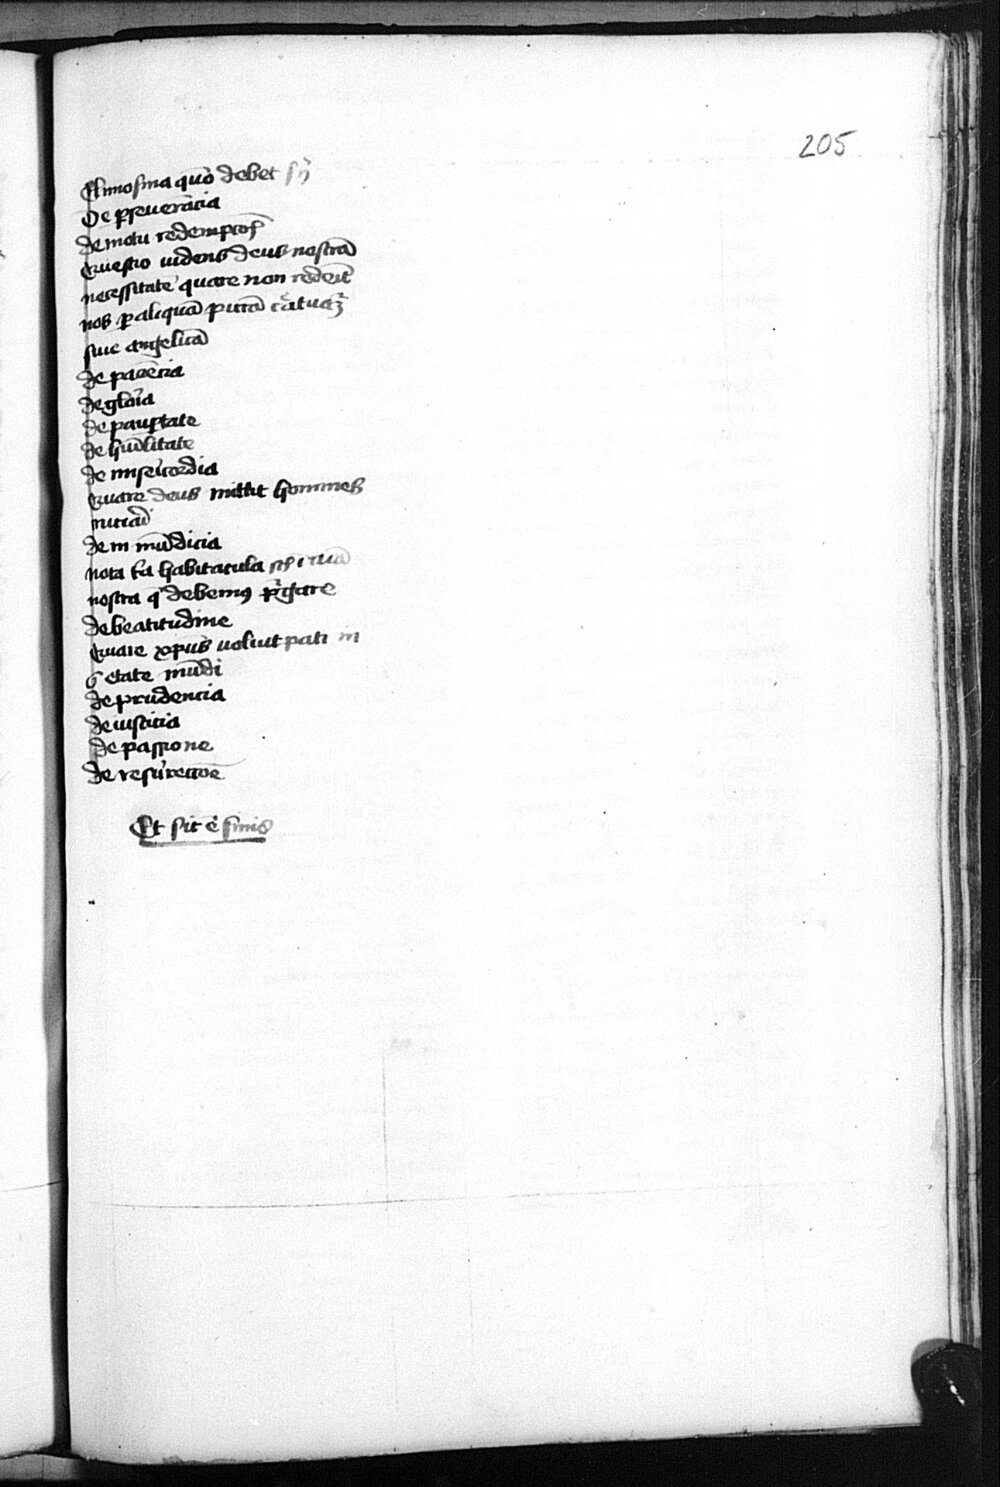 205
Elimosina quō debet
De ꝑseuerācia
de motu redemptoꝭ
Questio uidens deus nostrā
necessitatē quare non redeīt
nos ꝑ aliquā puram
siue angelicā
de paciēcia
de gloīa
de pauꝑtate
de hūilitate
de misericordia
Quare deus mittit homines
de in mūdicia
nota habitacula
nostra debemꝰ
de beatitudine
Quare xp̄us uoluit pati in
6 etate mūdi
de prudencia
de iusticia
de passione
de resurrectōe
Et sic ē finis